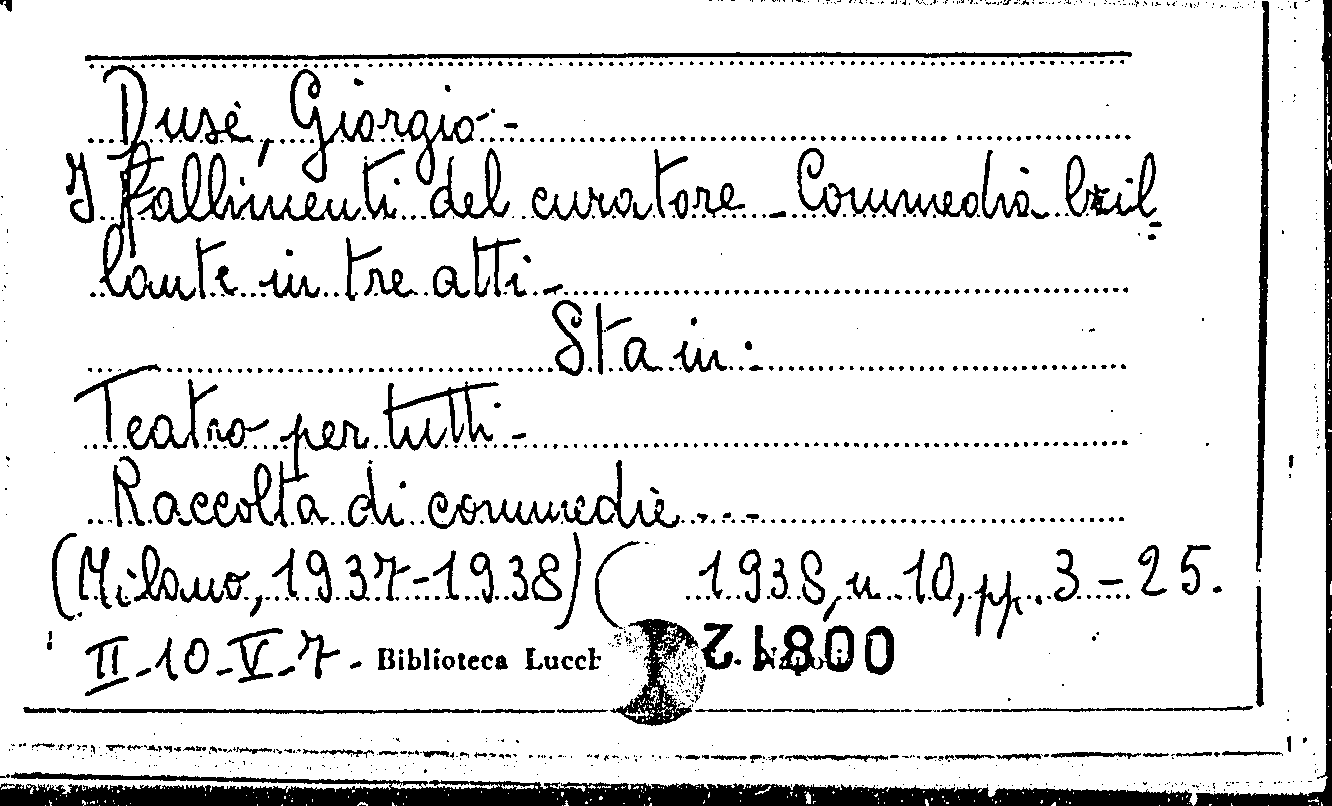 Dusè, Giorgio -
I fallimenti del curatore - Commedia bril=
lante in tre atti -
Sta in:
Teatro per tutti -
Raccolta di commedie ...
(Milano, 1937-1938) 1938, n. 10, pp. 3-25.
II-10-V-7- Biblioteca Lucch